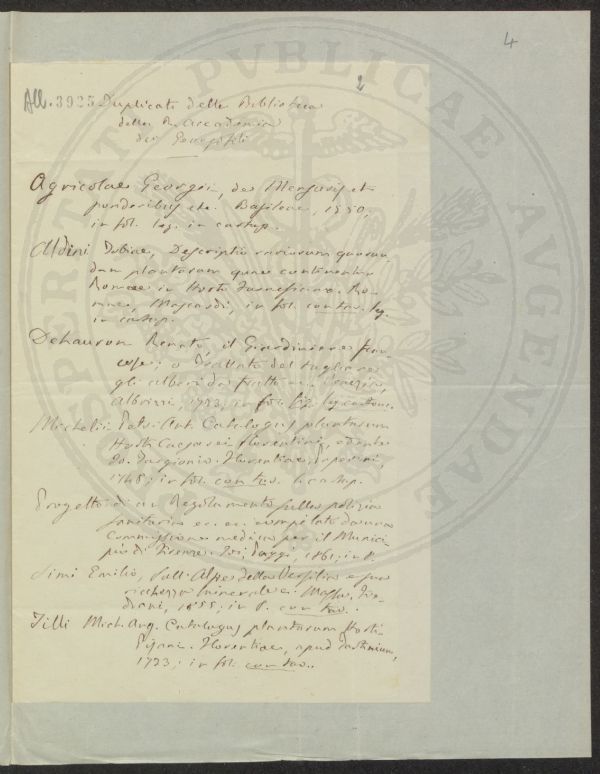 4
2
All. 3925 Duplicati della Biblioteca
della R. Accademia
dei Georgofili
Agricolae Georgii, de Mensuris et
ponderibus etc. Basileae, 1550,
in fol. leg. in cartap.
Aldini Tobiae, Descriptio rariorum quorun
dam plantarum quae continentur
Romae in Horto Farnesiano. Ro-
mae, Mascardi, in fol. con tav. leg.
in cartap.
Dehauron Renato, il Giardiniere fran-
cese; o Trattato del tagliare
gli alberi da frutto ... Venezia,
Albrizzi, 1723; in fol. leg. cartone
Michelii Petr. Ant. Catalogus plantarum
Horti Caesarei florentini,
Jo. Targionio. Florentiae,
1748; in fol. con tav. cartap.
Progetto di un Regolamento sulla polizia
sanitaria ec. ec. compilato da una
Commissione medica per il Munici-
pio di Firenze. Ivi, 1861; in 8.
Simi Emilio, sull'Alpe della Versilia e sua
ricchezza minerale. Massa, Fre-
diani, 1855; in 8. con tav.
Tilli Mich. Ang. Catalogus plantarum Horti
Pisani. Florentiae, apud Tartinium,
1723; in fol. con tav.
PUBLICAE
AUGENDAE
PROSPERITATI